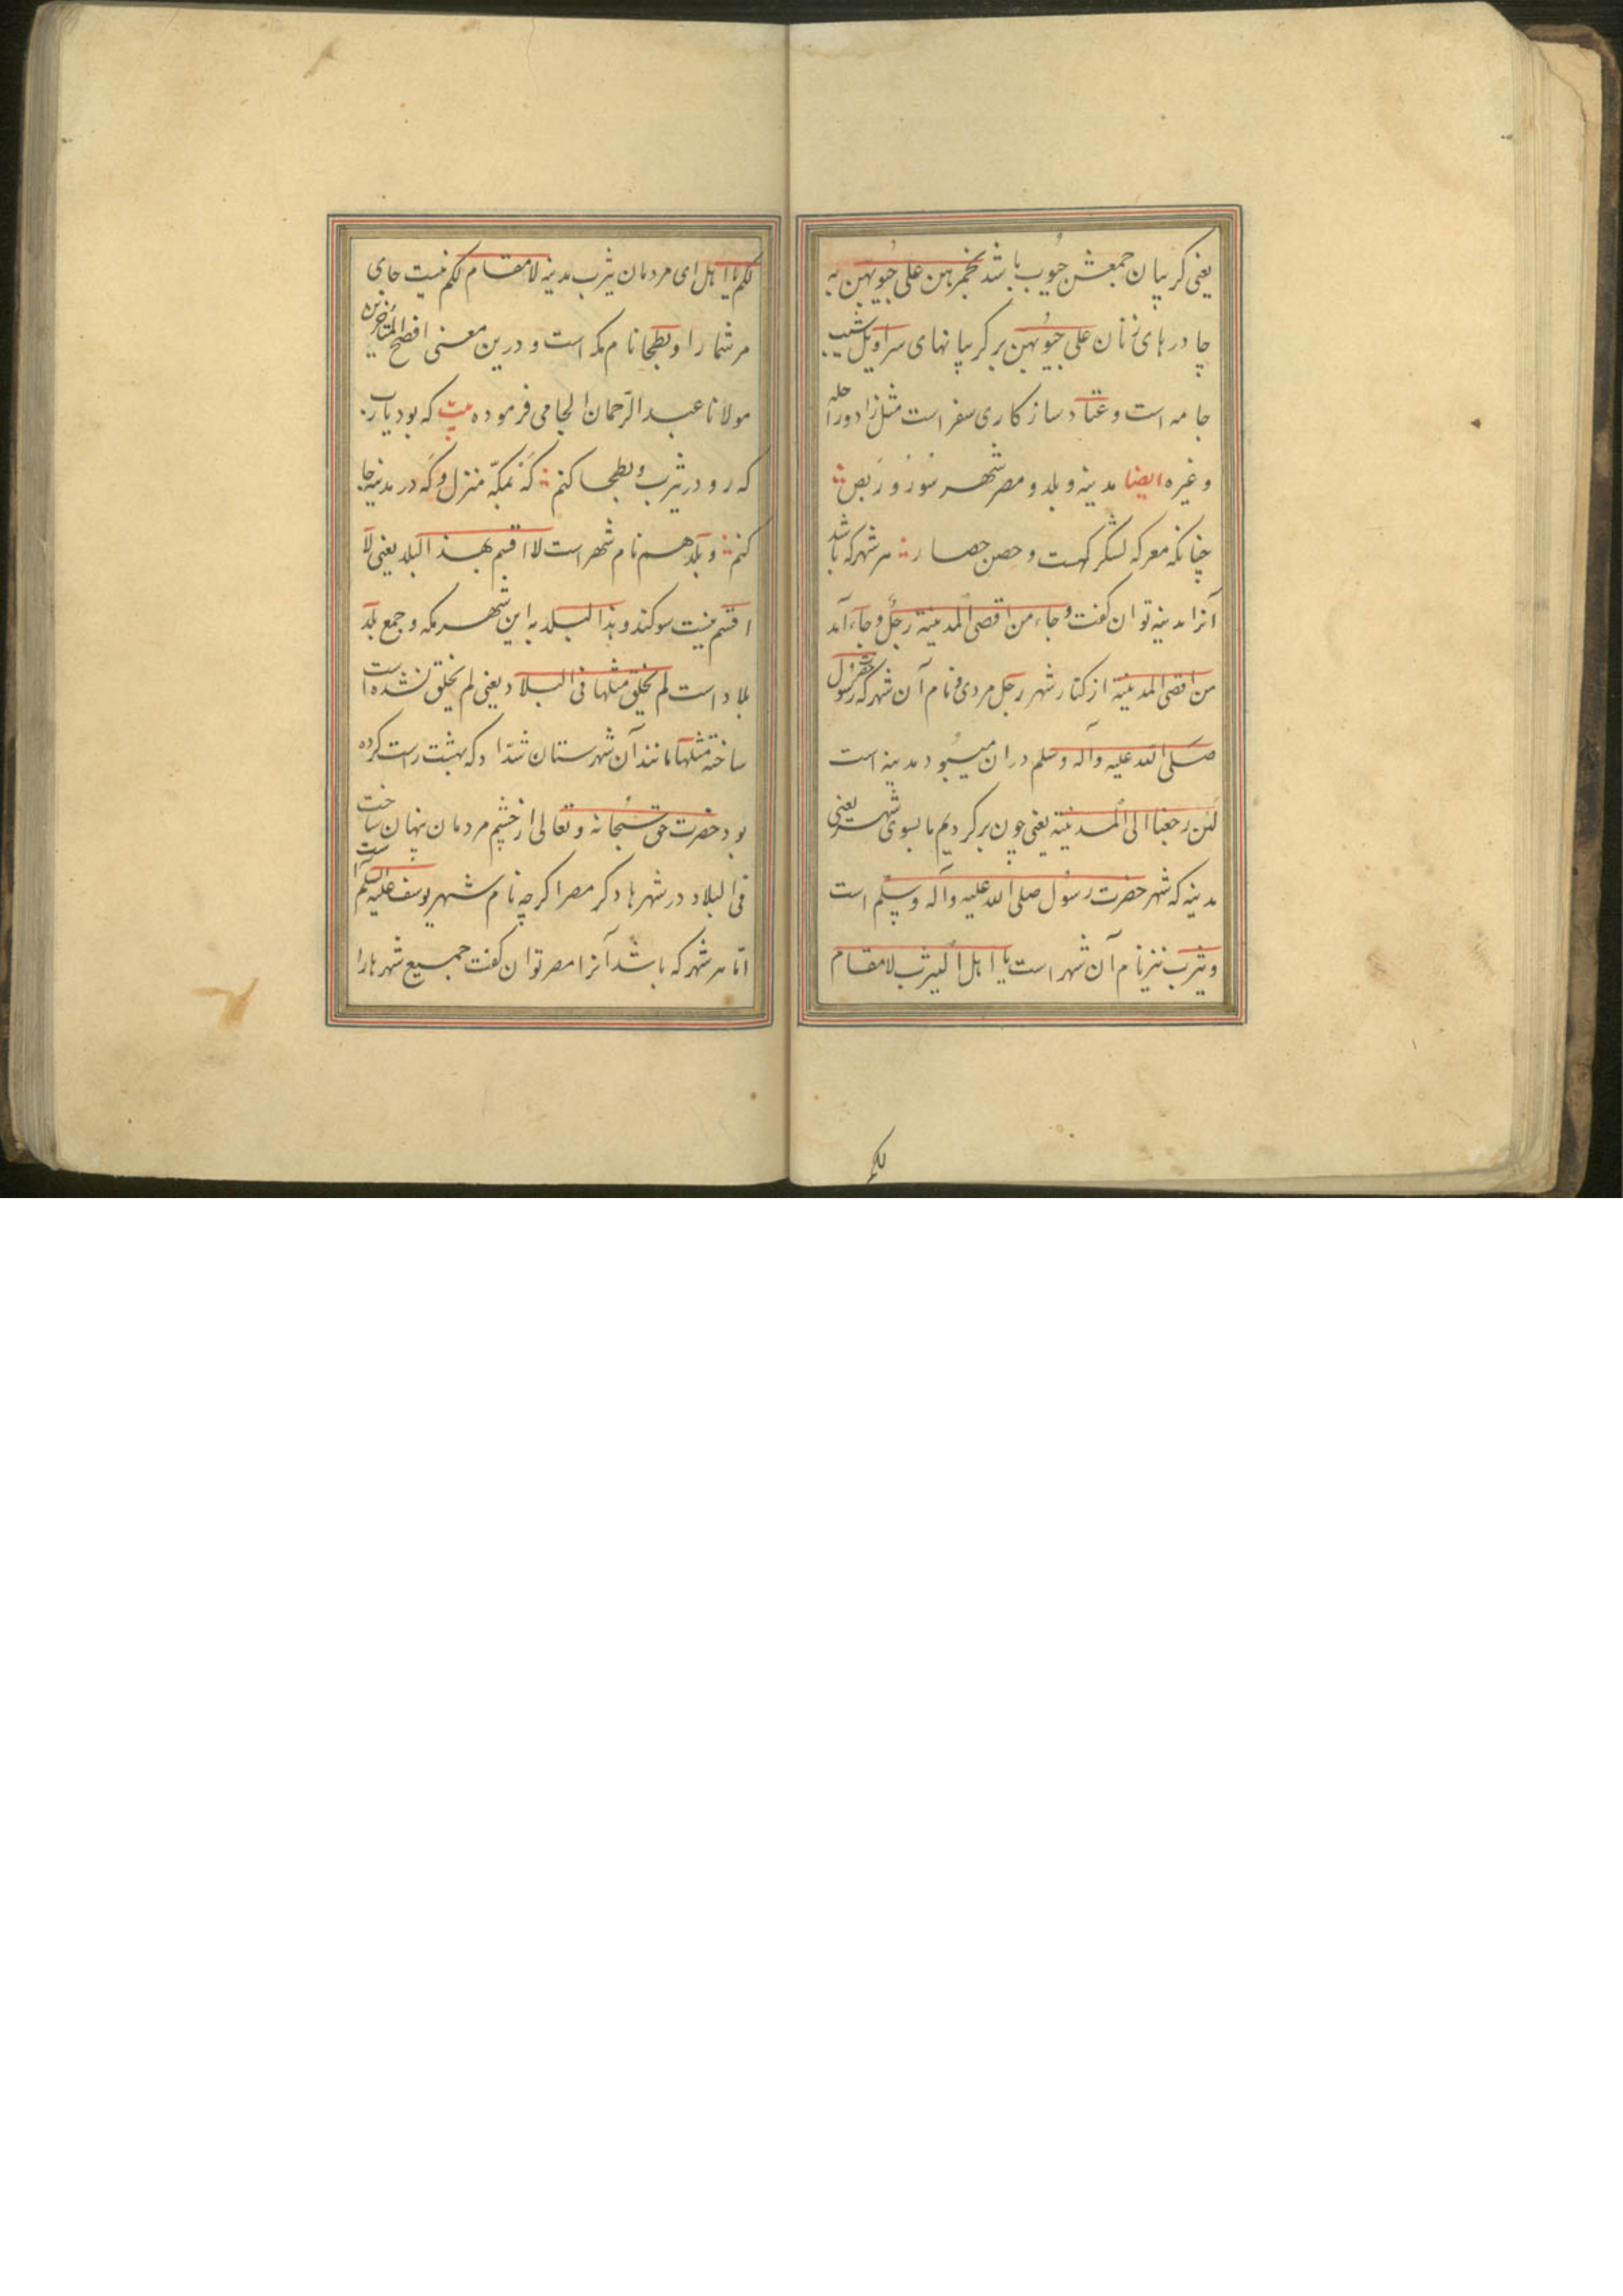 یعنی کریبان جمعش جُیوب باشد بخمرهن علی جُیوبهن به
چادرهای زنان علی جُیوبهن بر کریبانهای سراویل شیب
جامه است و عتاد ساز کاری سفر است مثل زاد و راحله
و غیره ایضا مدینه و بلد و مصر شهر سُور و رَبض
چنانکه معرکه لشکر کهست و حصن حصار هر شهر که باشد
آنرا مدینه توان کفت وجاء من اقصی المدینة رجل وجاء آمد
من اقصی المدینة از کنار شهر رجل مردی و نام آن شهر که حضرت رسول
صلی الله علیه وآله وسلم دران میبود مدینه است
لئن رجعنا الی المدینة یعنی چون بر کردیم ما بسوی شهر یعنی
مدینه که شهر حضرت رسول صلی الله علیه وآله وسلم است
و یثرب نیز نام آن شهر است یا اهل الیثرب لا مقام
لکم
لکم یا اهل ای مردمان یثرب مدینه لا مقام لکم نیست جای
مر شما را و بطحا نام مکه است و درین معنی افصح المتأخرین
مولانا عبد الرّحمان الجامی فرموده بیت که بود یارب
که رو در یثرب و بطحا کنم که بمکّه منزل و که در مدینه جا
کنم و بلد هم نام شهر است لا اقسم بهذا البلد یعنی لا
اقسم نیست سوکند و بذا البلد به این شهر مکه و جمع بلد
بلاد است لم یخلق مثلها فی البلاد یعنی لم یخلق نشده است
ساخته مثلها مانند آن شهرستان شدّاد که بهشت راست کرده
بود حضرت حق سبحانه و تعالی از چشم مردمان پنهان ساخت
فی البلاد در شهرها دکر مصر اکرچه نام شهر یوسف علیه السلم است
امّا هر شهر که باشد آنرا مصر توان کفت جمیع شهرها را